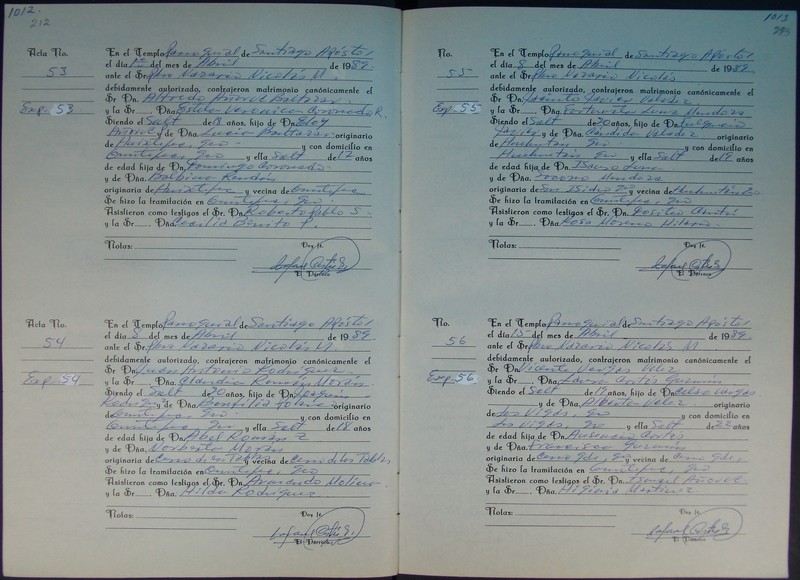 1012.
212
Acta No.
53
Exp. 53
En el Templo Parroquial de Santiago Apóstol
el día 1º del mes de Abril de 1989.
ante el Sr. Pbro Nazario Nicolás M.
debidamente autorizado, contrajeron matrimonio canónicamente el
Sr. Dn. Alfredo Añorve Baltazar
y la Sr. Dña. Veronica Coronado R.
Siendo el Solt de 18 años, hijo de Dn. Eloy
Añorve y de Dña. Lucia Baltazar originario
de Huixtepec, Gro y con domicilio en
Ometepec, Gro y ella Solt de 17 años
de edad hija de Dn. Domingo Coronado
y de Dña. Balbina Rendón
originaria de Huixtepec y vecina de Ometepec
Se hizo la tramitación en Ometepec, Gro.
Asistieron como testigos el Sr. Dn. Roberto Pablo S.
y la Sr. Dña. Cecilia Benito P.
Notas:
Doy fe.
El Párroco
Acta No.
54
Exp. 54
En el Templo Parroquial de Santiago Apóstol
el día 8 del mes de Abril de 1989.
ante el Sr. Pbro Nazario Nicolás M.
debidamente autorizado, contrajeron matrimonio canónicamente el
Sr. Dn. Juan Antonio Rodriguez
y la Sr. Dña. Claudia Román Morán
Siendo el Solt de 20 años, hijo de Dn.
Rodrig y de Dña. originario
de Ometepec, Gro y con domicilio en
Ometepec, Gro y ella Solt de 18 años
de edad hija de Dn. Abel Roman Z
y de Dña. Norberta Morán
originaria de Cerro de las Tablas y vecina de Cerro de las Tablas
Se hizo la tramitación en Ometepec, Gro
Asistieron como testigos el Sr. Dn. Armando Molina
y la Sr. Dña. Hilda Rodriguez
Notas:
Doy fe.
El Párroco
1013
No.
55
Exp. 55
En el Templo Parroquial de Santiago Apóstol
el día 8 del mes de Abril de 1989.
ante el Sr. Pbro Nazario Nicolás
debidamente autorizado, contrajeron matrimonio canónicamente el
Sr. Dn. Jacinto Javier Valadez
y la Sr. Dña. Fortunata Luna Mendoza
Siendo el Solt de 20 años, hijo de Dn.
Javier y de Dña. Candida Valadez originario
de Huehuetán, Gro y con domicilio en
Huehuetán Gro y ella Solt de 19 años
de edad hija de Dn. Isauro Luna
y de Dña. Mendoza
originaria de San Isidro Gro y vecina de Huehuetán Gro
Se hizo la tramitación en Ometepec, Gro
Asistieron como testigos el Sr. Dn.
y la Sr. Dña. Rosa Moreno Hilario
Notas:
Doy fe.
El Párroco
No.
56
Exp. 56
En el Templo Parroquial de Santiago Apóstol
el día 15 del mes de Abril de 1989.
ante el Sr. Pbro Nazario Nicolás M
debidamente autorizado, contrajeron matrimonio canónicamente el
Sr. Dn. Vicente Vargas Velez
y la Sr. Dña. Laura Cortés Guzmán
Siendo el Solt de años, hijo de Dn. Celso Vargas
y de Dña. Velez originario
de Las Vigas, Gro y con domicilio en
Las Vigas, Gro y ella Solt de 22 años
de edad hija de Dn. Ausencio Cortés
y de Dña. Francisca Guzmán
originaria de y vecina de
Se hizo la tramitación en Ometepec, Gro
Asistieron como testigos el Sr. Dn. Ismael Añorve
y la Sr. Dña. Higinia Martinez
Notas:
Doy fe.
El Párroco